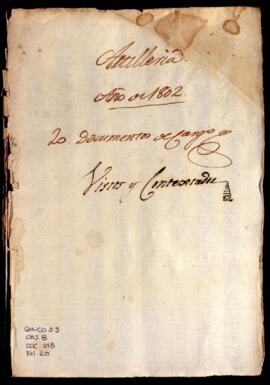 Artilleria
Año de 1802
20. Documentos de cargo
Vistos y
GM-CO 2.3
CAJ. 8
DOC. 218
Fol. 20